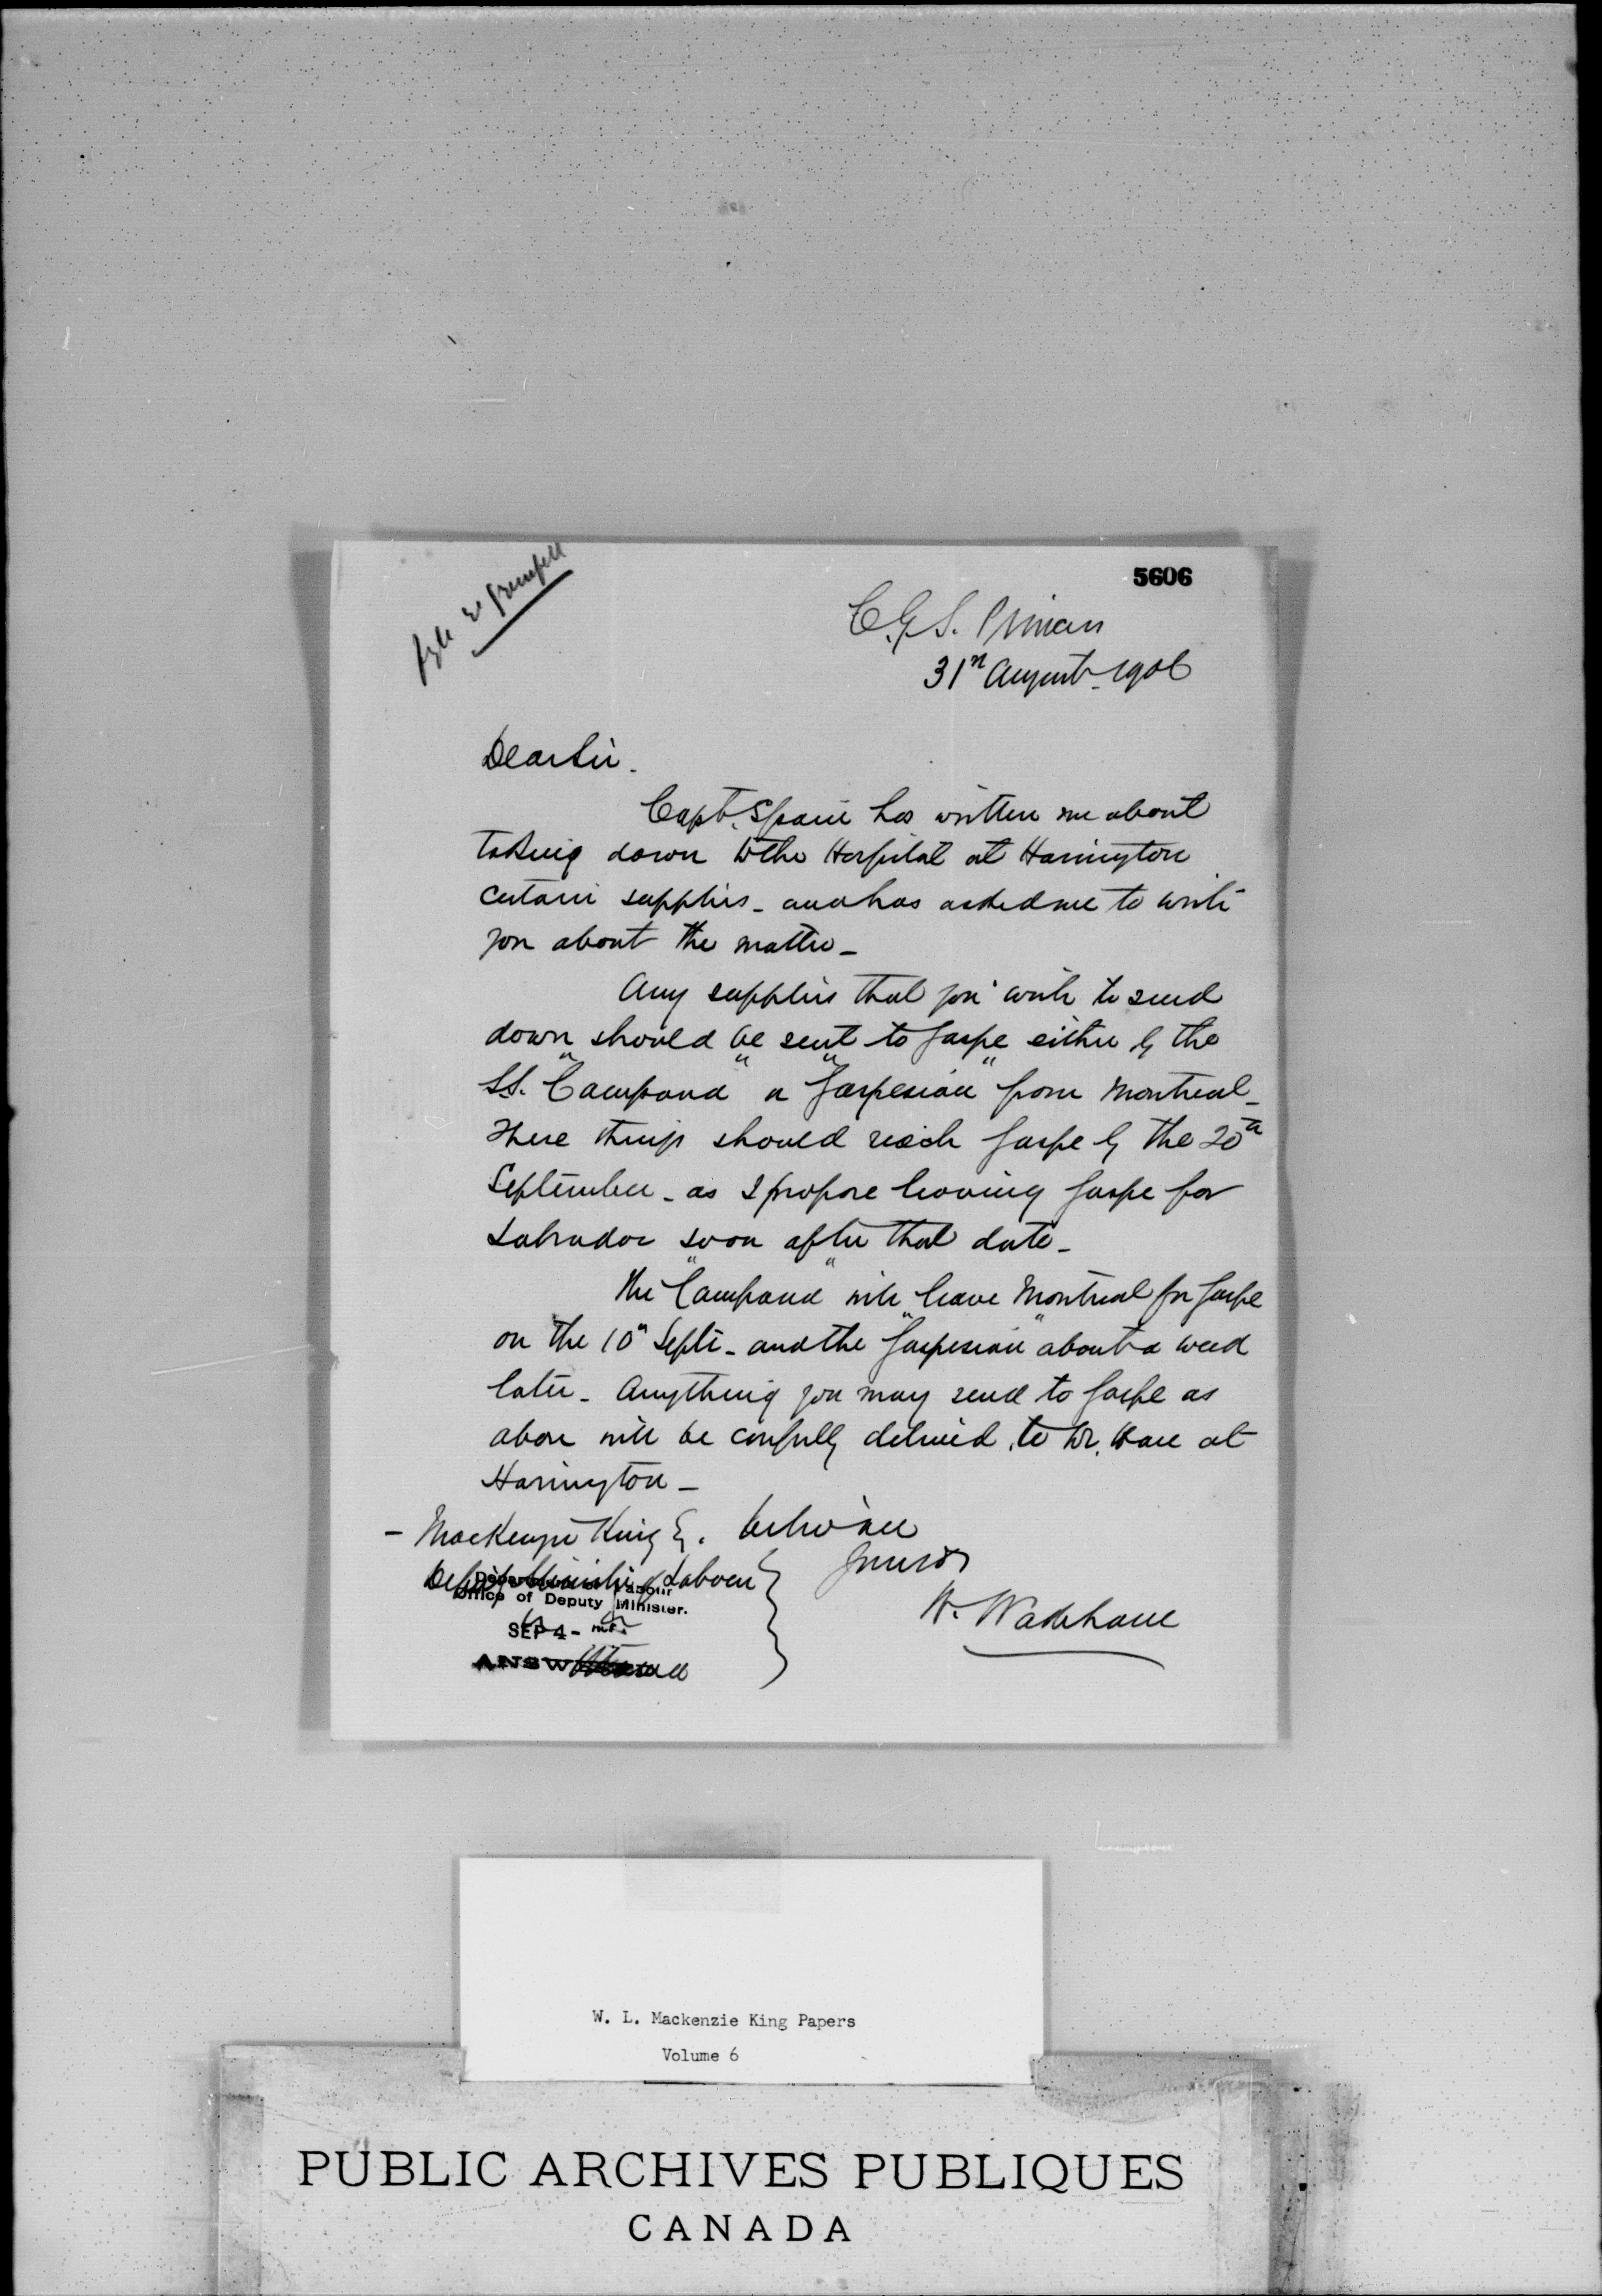 5606
file re Grenfell
C.G.S. Princess
31st August 1906
Dear Sir.
Capt. Spain has written me about
taking down to the Hospital at Harrington
certain supplies - and has asked me to write
you about the matter -
Any supplies that you wish to send
down should be sent to Gaspe either by the
S.S. "Campana" or "Gaspesian" from Montreal -
These things should reach Gaspe by the 20th
September - as I propose leaving Gaspe for
Labrador soon after that date -
The "Campana" will leave Montreal for Gaspe
on the 10th Septr - and the "Gaspesian" about a week
later - Anything you may send to Gaspe as
above will be carefully delivered to Dr. Hare at
Harrington -
- MacKenzie King Esq. Believe me
Deputy Minister of Labour } Yours
Department of Labour
Office of Deputy Minister.
W. Wakeham
SEP 4 -
Ottawa
W. L. Mackenzie King Papers
Volume 6
PUBLIC ARCHIVES PUBLIQUES
CANADA